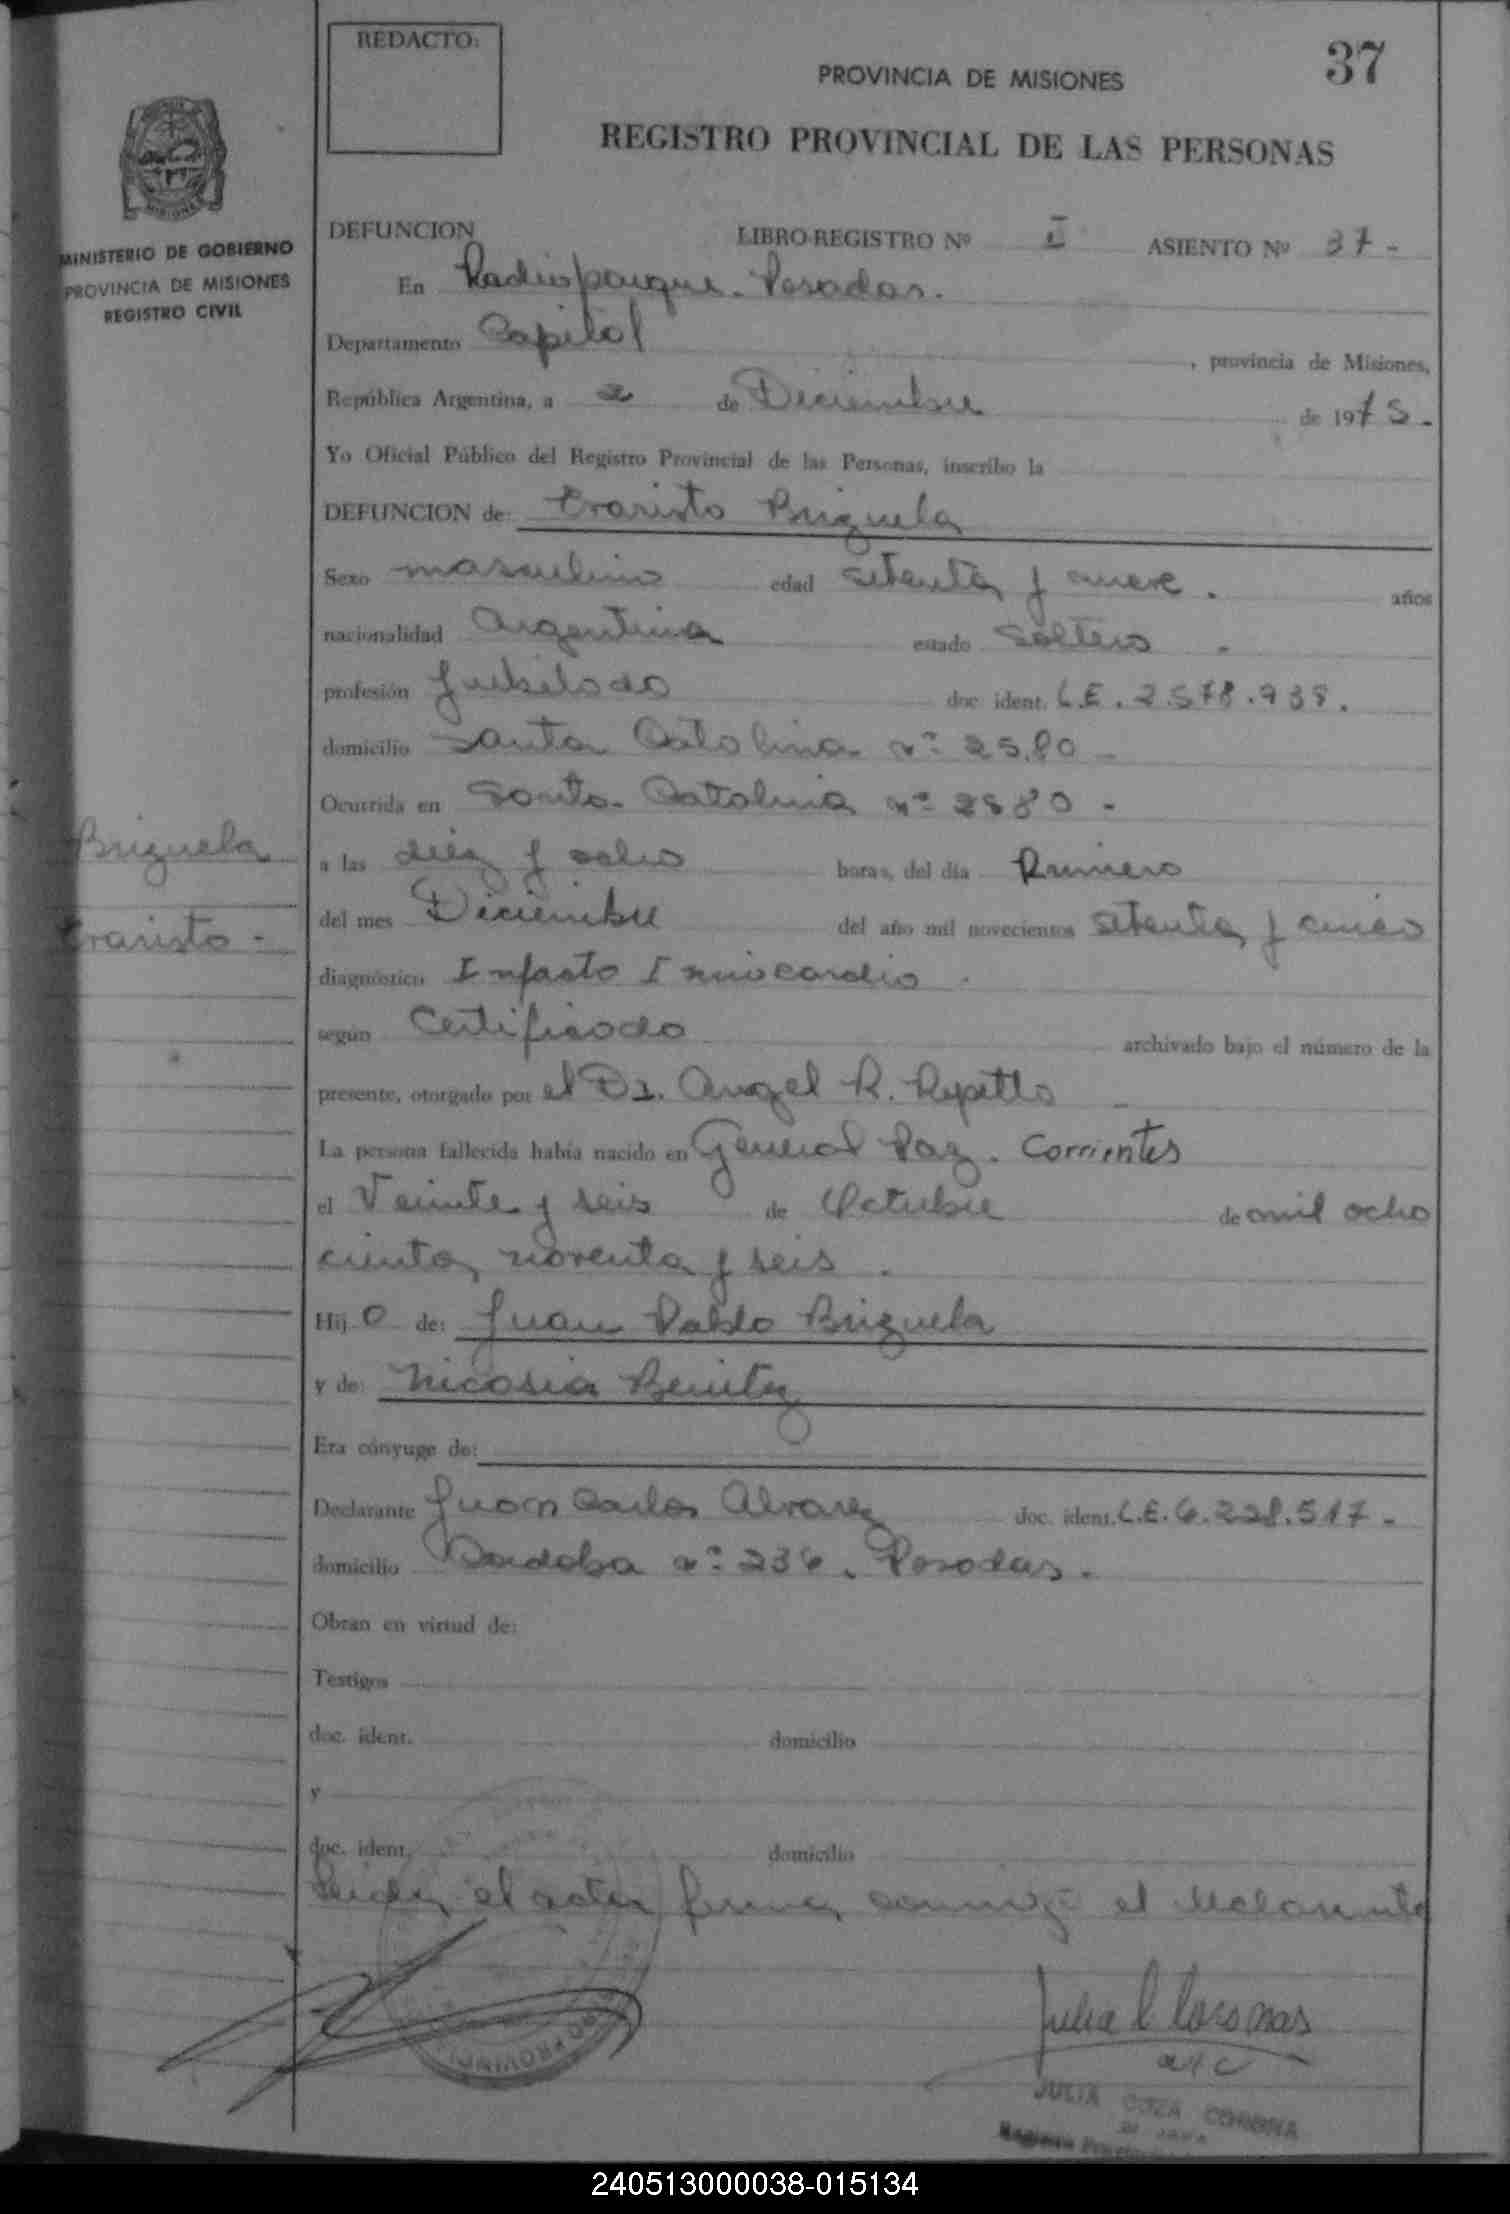 REDACTO:
37
PROVINCIA DE MISIONES
REGISTRO PROVINCIAL DE LAS PERSONAS
MISIONES
MINISTERIO DE GOBIERNO
PROVINCIA DE MISIONES
REGISTRO CIVIL
DEFUNCION LIBRO-REGISTRO Nº I ASIENTO Nº 37-
En Radioparque. Posadas.
Departamento Capital, provincia de Misiones,
República Argentina, a 2 de Diciembre de 1975.
Yo Oficial Público del Registro Provincial de las Personas, inscribo la
DEFUNCION de: Evaristo Brizuela
Sexo masculino edad setenta y nueve. años
nacionalidad Argentina estado Soltero.
profesión Jubilado doc. ident. L.E. 2.578.938.
domicilio Santa Catalina nº 2580-
Ocurrida en Santa Catalina nº 2580-
Brizuela
Evaristo-
a las diez y ocho horas, del día Primero
del mes Diciembre del año mil novecientos setenta y cinco
diagnóstico Infarto I miocardio.
según Certificado archivado bajo el número de la
presente, otorgado por el Dr. Angel R. Repetto
La persona fallecida había nacido en General Paz. Corrientes
el Veinte y seis de Octubre de mil ocho
ciento noventa y seis.
Hijo de: Juan Pablo Brizuela
y de: Nicosia Benitez
Era cónyuge de:
Declarante Juan Carlos Alvarez doc. ident. L.E. 6.228.517-
domicilio Cordoba nº 236. Posadas.
Obran en virtud de:
Testigos
doc. ident. domicilio
y
doc. ident. domicilio
Leida el acta firma conmigo el declarante
Julia C Coronas
a/c
JULIA CORONA
240513000038-015134